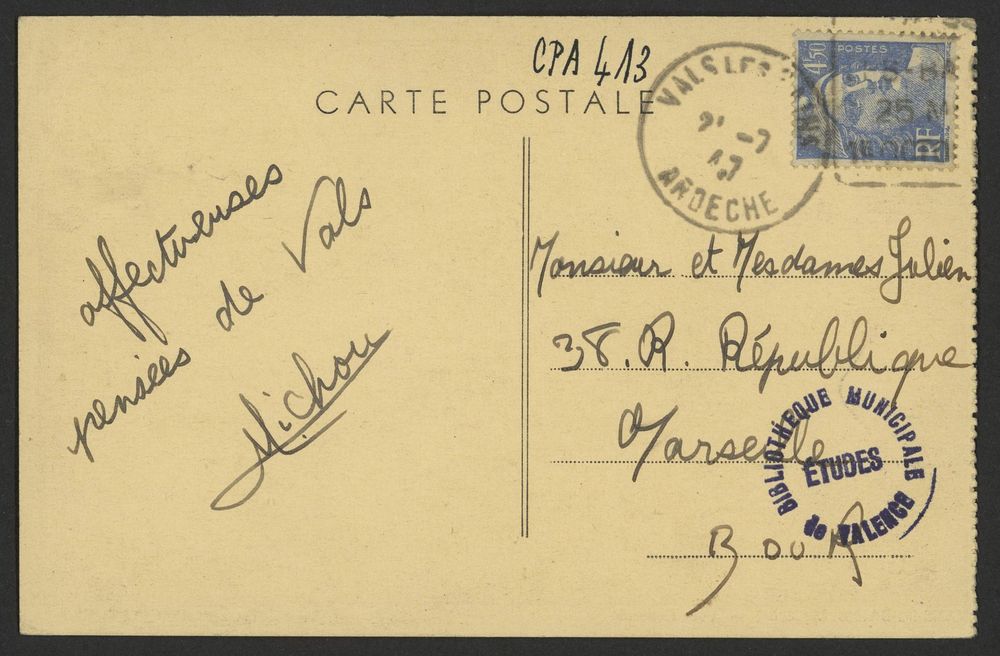 CPA 413
CARTE POSTALE
VALS LES
21-7
47
ARDECHE
4f50
POSTES
RF
25 M
affectueuses
pensées de Vals
Michou
Monsieur et Mesdames Julien
38. R. République
Marseille
B du R
BIBLIOTHEQUE MUNICIPALE
ETUDES
de VALENCE